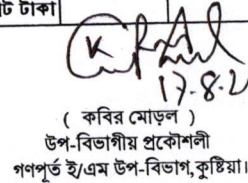 ট টাকা
17.8.2
( কবির মোড়ল )
উপ-বিভাগীয় প্রকৌশলী
গণপূর্ত ই/এম উপ-বিভাগ,কুষ্টিয়া।